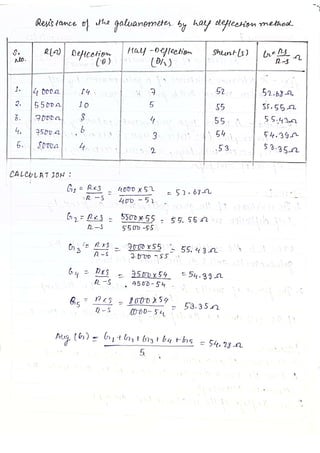 Resistance of the galvanometer by half deflection method.
S. No. R(Ω) Deflection (θ) Half-Deflection (θ/2) Shunt (S) G = RS/R-S Ω
1. 4000Ω 14 7 52 52.68Ω
2. 5500Ω 10 5 55 55.55Ω
3. 7000Ω 8 4 55 55.43Ω
4. 7500Ω 6 3 54 54.39Ω
5. 8000Ω 4 2 53 53.35Ω
CALCULATION:
G₁ = R×S/R-S = 4000×52/400-52 = 52.68Ω
G₂ = R×S/R-S = 5500×55/5500-55 = 55.55Ω
G₃ = R×S/R-S = 7000×55/7000-55 = 55.43Ω
G₄ = R×S/R-S = 7500×54/7500-54 = 54.39Ω
G₅ = R×S/R-S = 54/54 = 53.35Ω
Avg. (G) = G₁+G₂+G₃+G₄+G₅/5 = Ω